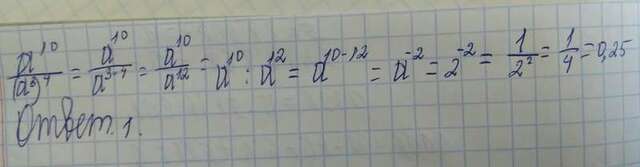 a^10/(a^3)^4 = a^10/a^{3·4} = a^10/a^12 = a^10 : a^12 = a^{10-12} = a^{-2} = 2^{-2} = 1/2^2 = 1/4 = 0,25
Ответ. 1.